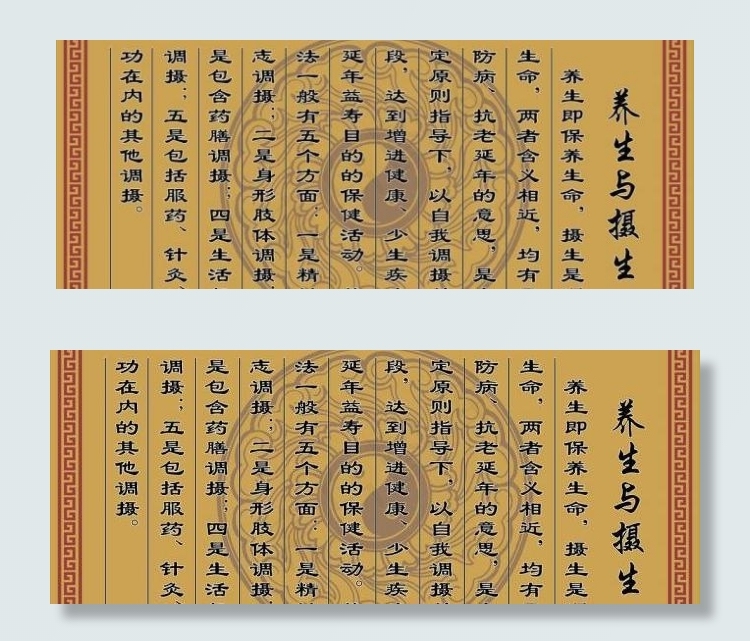 养生与摄生
养生即保养生命，摄生是
生命，两者含义相近，均有
防病、抗老延年的意思，是
定原则指导下，以自我调摄
段，达到增进健康、少生疾
延年益寿目的的保健活动。
法一般有五个方面：一是精
志调摄；二是身形肢体调摄
是包含药膳调摄；四是生活
调摄；五是包括服药、针灸
功在内的其他调摄。
养生与摄生
养生即保养生命，摄生是
生命，两者含义相近，均有
防病、抗老延年的意思，是
定原则指导下，以自我调摄
段，达到增进健康、少生疾
延年益寿目的的保健活动。
法一般有五个方面：一是精
志调摄；二是身形肢体调摄
是包含药膳调摄；四是生活
调摄；五是包括服药、针灸
功在内的其他调摄。